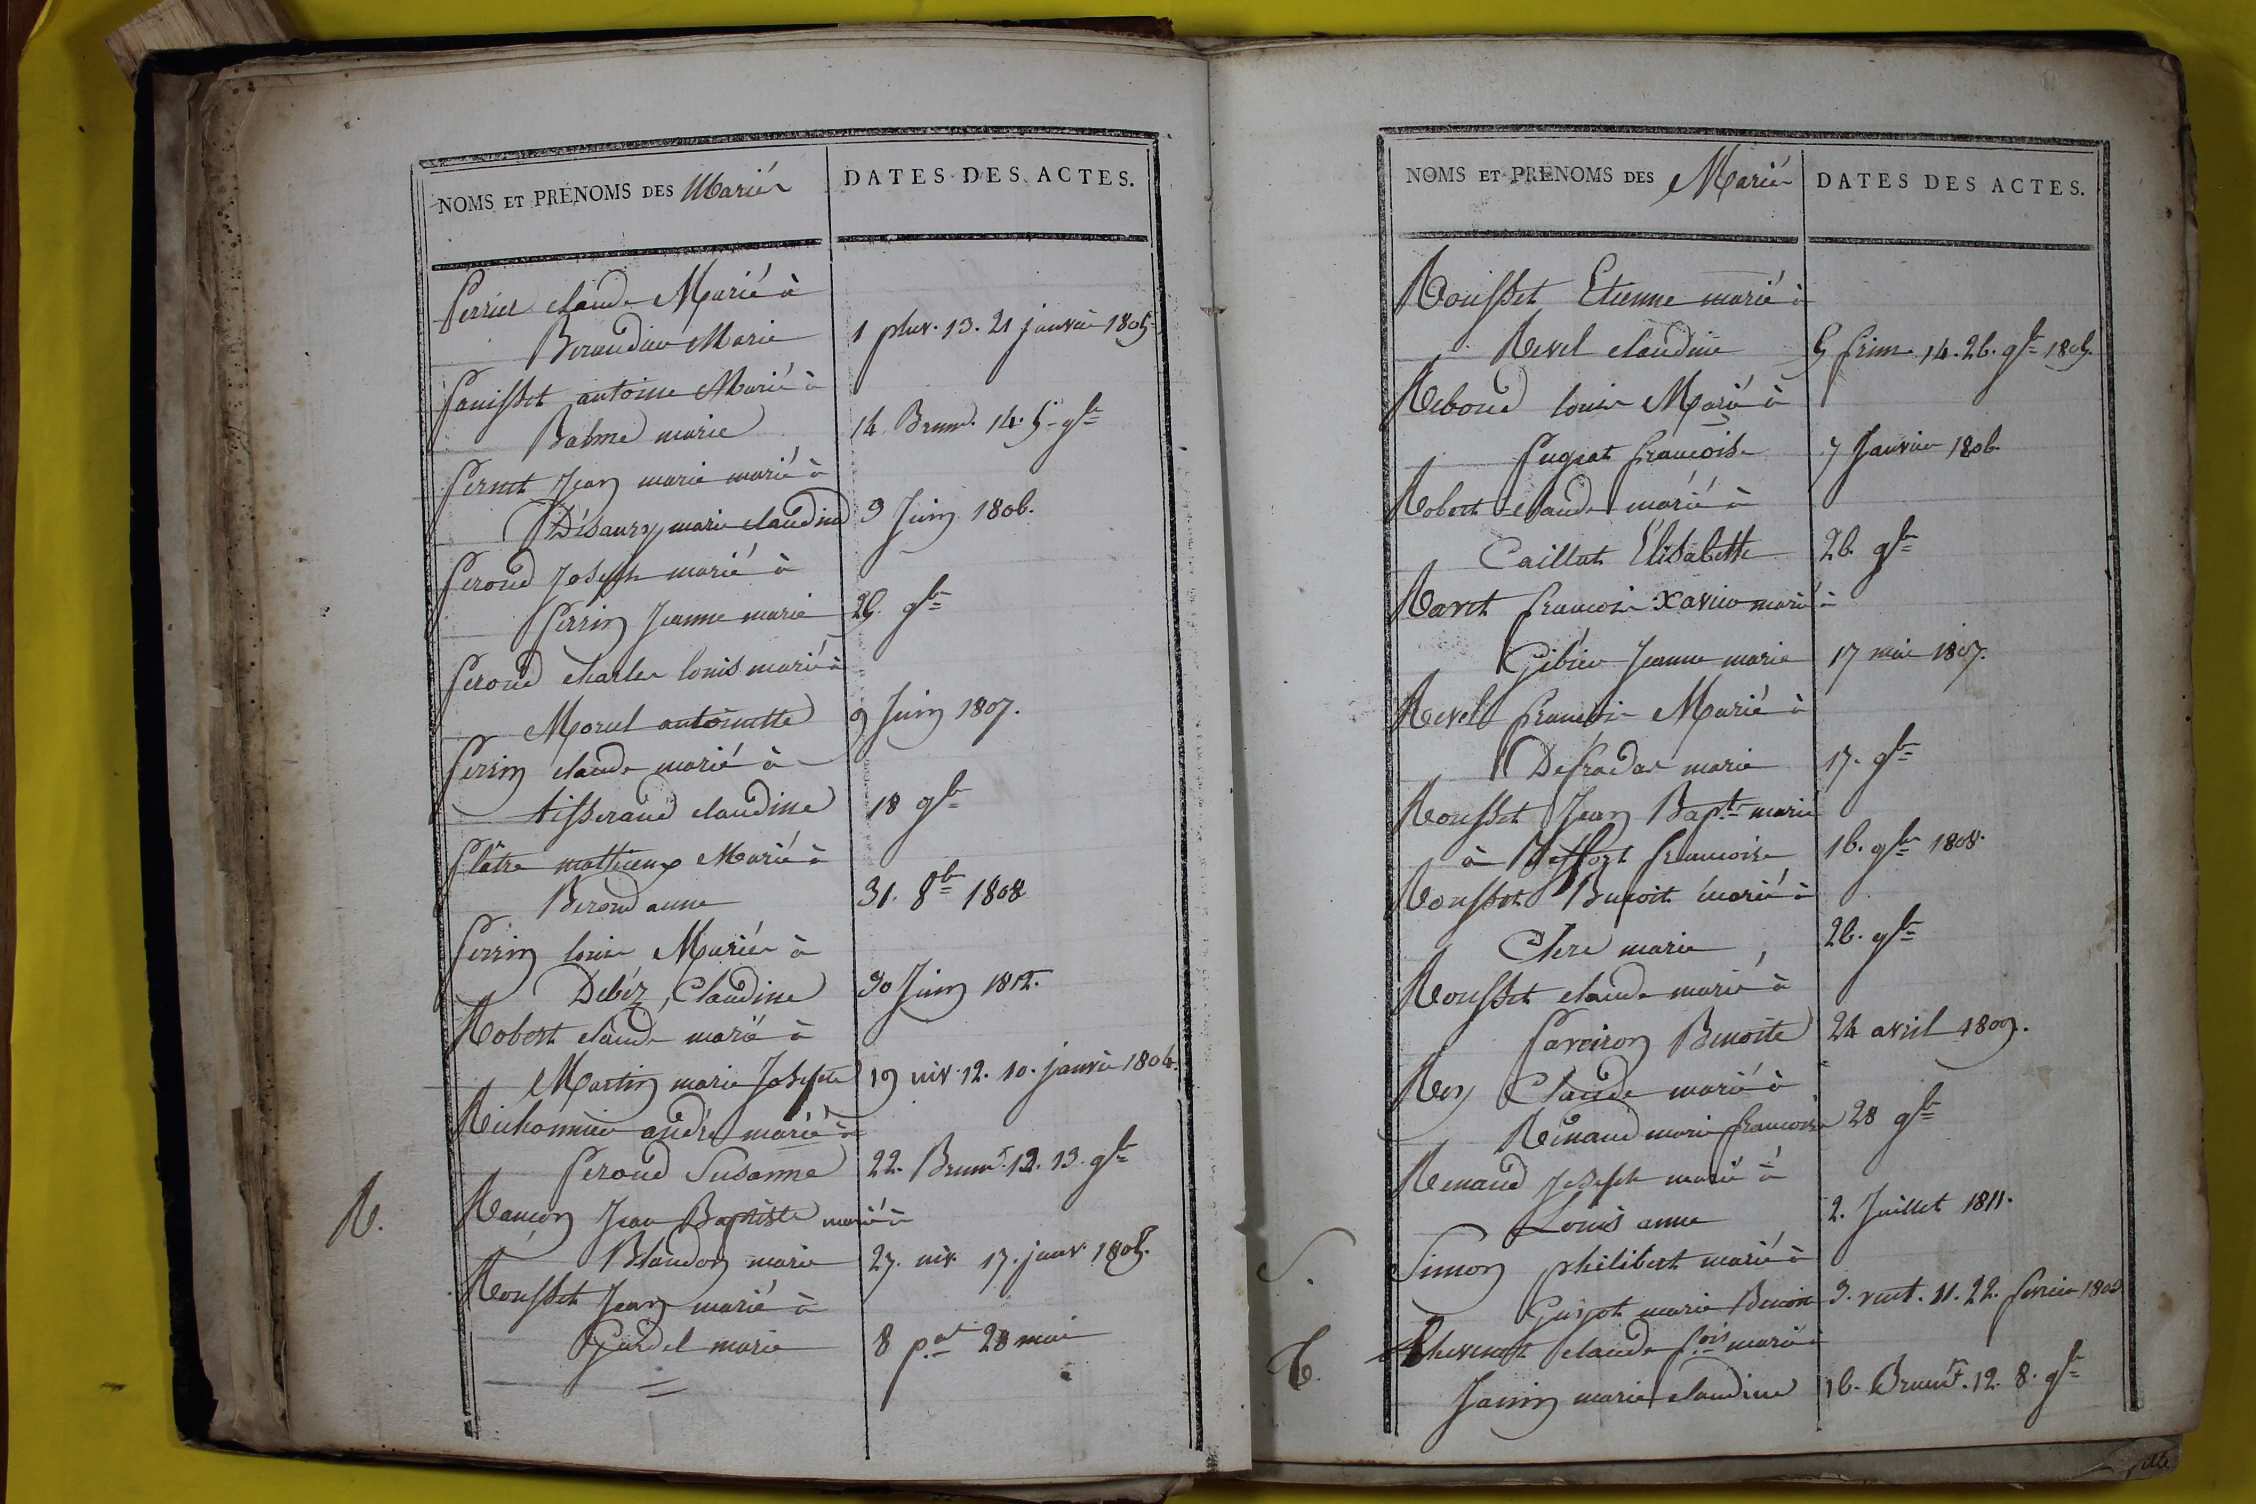 NOMS ET PRÉNOMS DES Mariés
DATES DES ACTES.
Perrier claude Marié à
Beraudier Marie 1 pluv. 13. 21 janvier 1805
Pauisset antoine Marié à
Balme marie 14 Brum. 14. 5 9bre
Pernet Jean marie marié à
Désaury marie claudine 3 Juin 1806.
Peroud Joseph marié à
Perrin Jeanne marie 25. 9bre
Peroud charles louis marié à
Morel antoinette 9 Juin 1807.
Perrin claude marié à
tisserand claudine 18 9bre
Plâtre mathieux Marié à
Beroud anne 31. 8bre 1808
Perrin louis Mariés à
Débéz Claudine 30 Juin 1812.
Robert claude marié à
Martin marie Josephte 19 niv. 12. 10. janvier 1804.
Richonnier andré marié à
Peroud Susanne 22. Brum. 12. 13. 9bre
R.
Rançon Jean Baptiste marié à
Blandon marie 27. niv. 17. janv. 1805.
Rousset Jean marié à
Gardel marie 8 p.al 28 mai
NOMS ET PRENOMS DES Mariés
DATES DES ACTES.
Rousset Etienne marié à
Revel claudine 5 frim. 14. 26. 9bre 1805.
Reboud louis Marié à
Pugeat françoise 7 Janvier 1806
Robert claude marié à
Caillat Elisabette 26 9bre
Ravet françois xavier marié à
Gibier Jeanne marie 17 mai 1807.
Revel françois Marié à
Defradas marie 17. 9bre
Rousset Jean Bapte marié
à Beffort françoise 16. 9bre 1808.
Rousset Benoit marié à
Clere marie 26. 9bre
Rousset claude marié à
Paveiron Benoite 24 avril 1809.
Rey Claude marié à
Renaud marie françoise 28 9bre
Renaud Joseph marié à
Louis anne 2. Juillet 1811.
S.
Simon philibert marié à
Guijot marie Benoite 3. vent. 11. 22. fevrier 1803
T.
Thevenot claude f.ois marié à
Janin marie claudine 16. Brum. 12. 8. 9bre